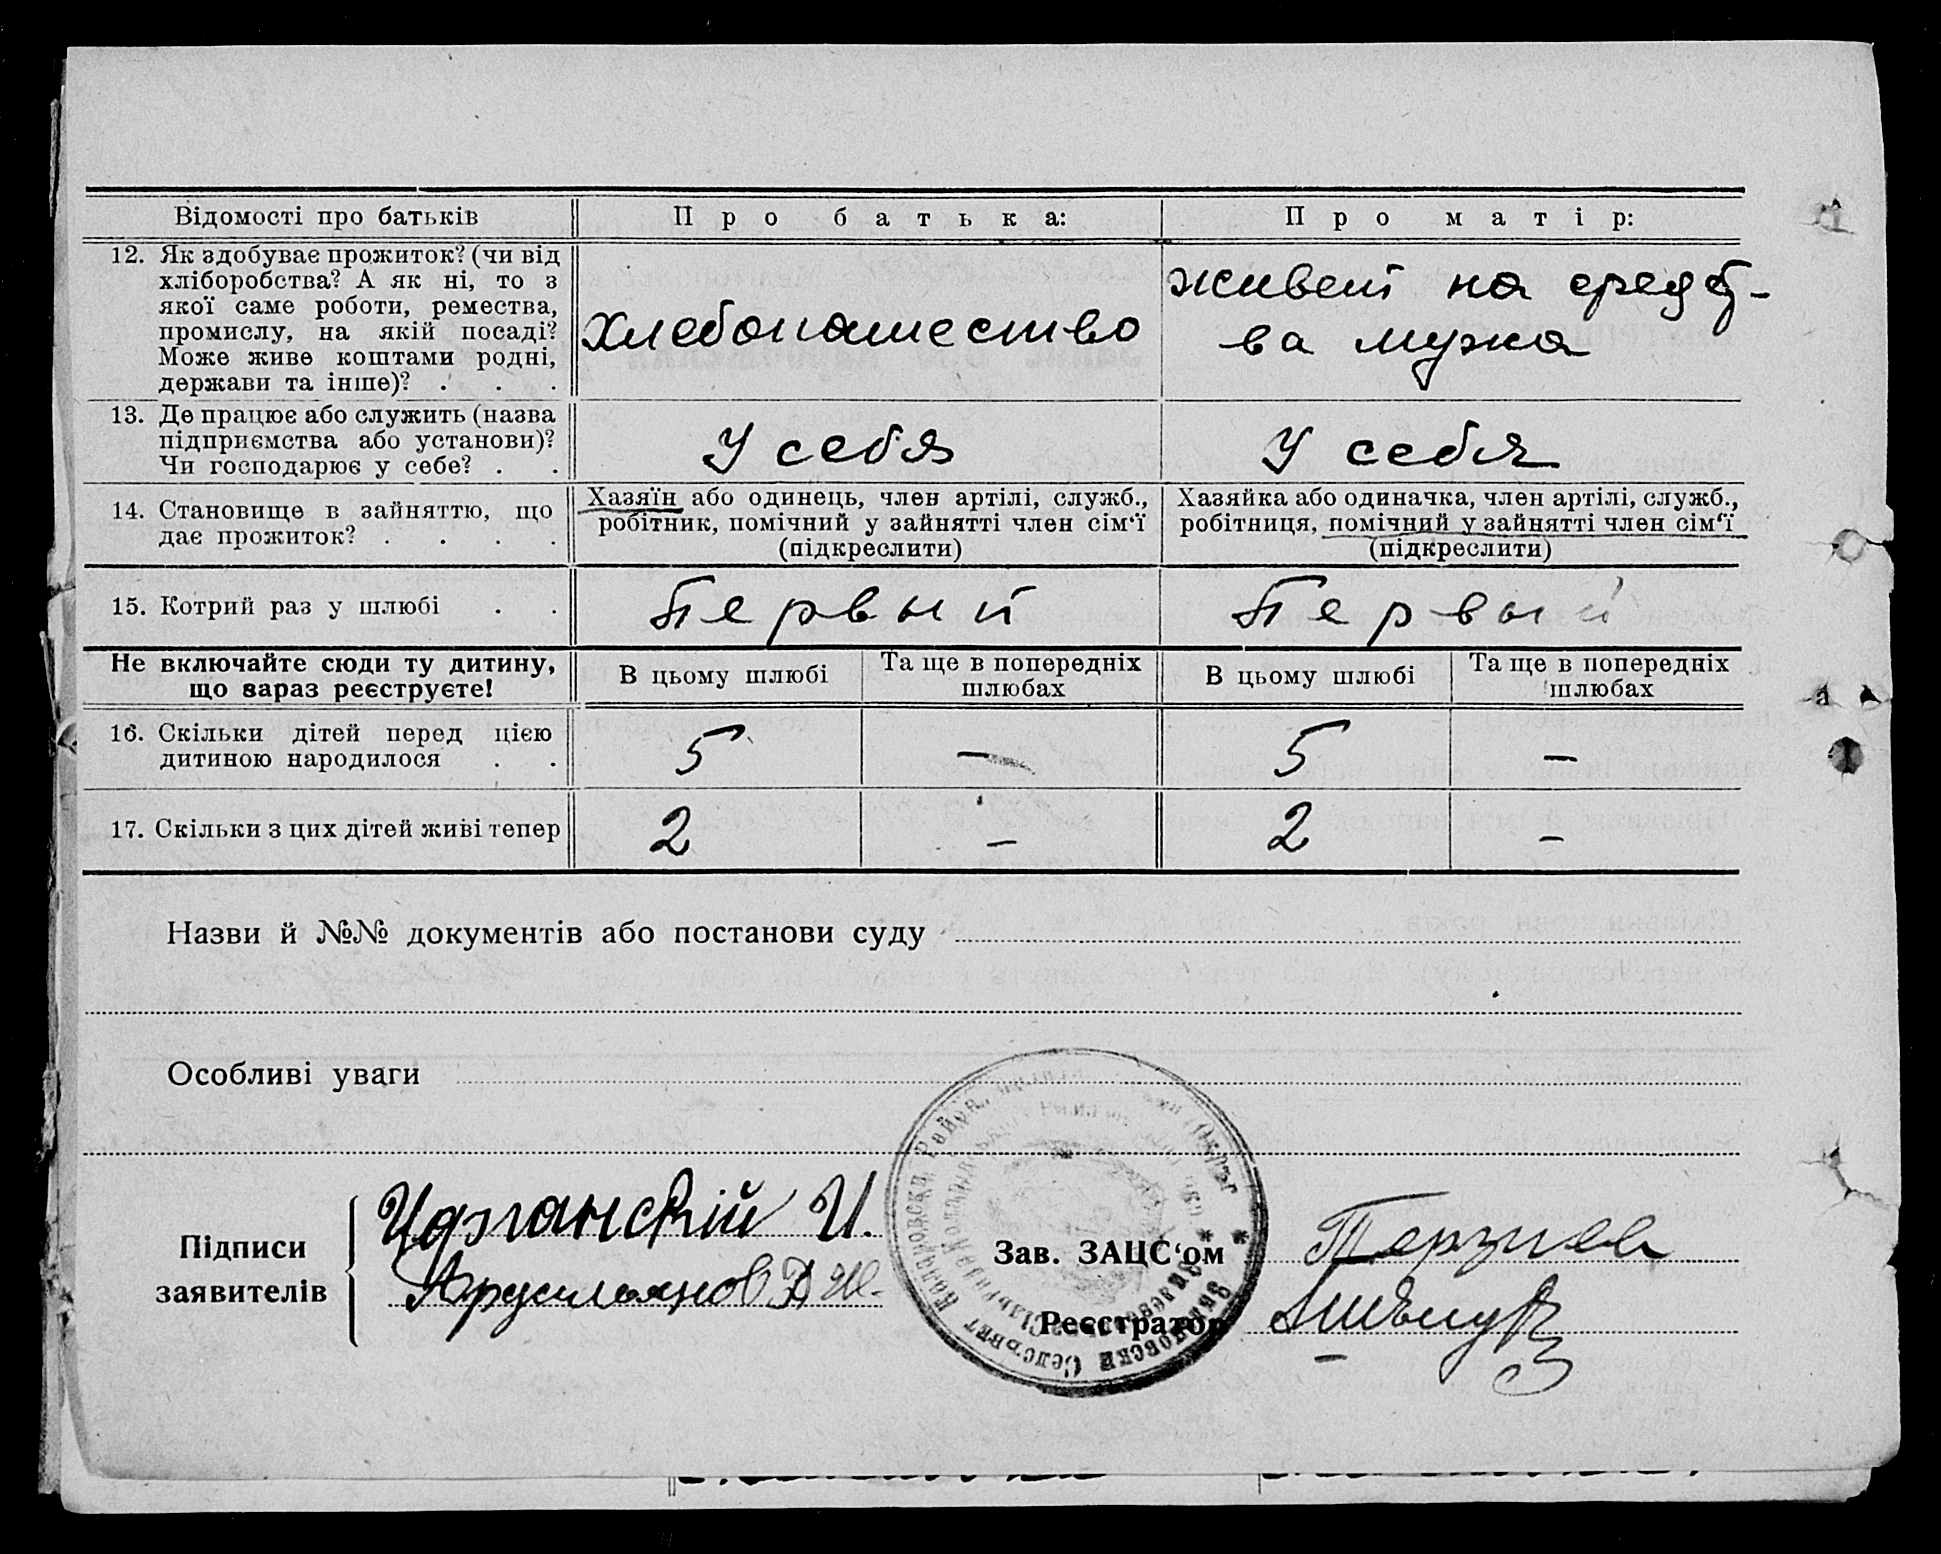 Відомості про батьків
Про батька:
Про матір:
12. Як здобуває прожиток? (чи від
хліборобства? А як ні, то з
якої саме роботи, ремества,
промислу, на якій посаді?
Може живе коштами родні,
держави та інше)? . . .
Хлебопашество
живет на средст-
ва мужа
13. Де працює або служить (назва
підприємства або установи)?
Чи господарює у себе? . .
У себя
У себя
14. Становище в зайняттю, що
дає прожиток? . . . .
Хазяїн або одинець, член артілі, служб.,
робітник, помічний у зайнятті член сім'ї
(підкреслити)
Хазяйка або одиначка, член артілі, служб.,
робітниця, помічний у зайнятті член сім'ї
(підкреслити)
15. Котрий раз у шлюбі . .
Первый
Первый
Не включайте сюди ту дитину,
що зараз реєструєте!
В цьому шлюбі
Та ще в попередніх
шлюбах
В цьому шлюбі
Та ще в попередніх
шлюбах
16. Скільки дітей перед цією
дитиною народилося . .
5
—
5
—
17. Скільки з цих дітей живі тепер
2
—
2
—
Назви й №№ документів або постанови суду
Особливі уваги
Підписи
заявителів
И.
Зав. ЗАЦС'ом
Терзиев
Реєстратор
Район
Сельъвет